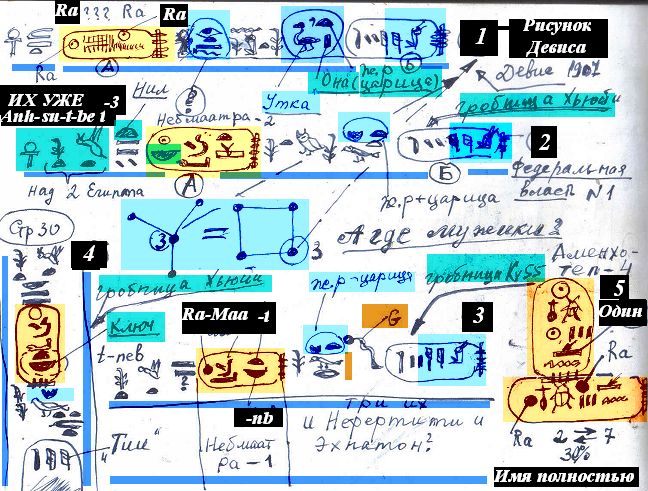 Ra ??? Ra Ra
Ra
А
Б
1 Рисунок
Девиса
Девис 1907
Она (ж.р
царица)
Утка
Нил
ИХ УЖЕ -3
Anh-su-t-be t
Небмаатра-2
гробница Хьюйи
2
над 2 Египта
А
Б
ж.р+царица
Федеральная
власт N1
Gr 30
3 = 3
А где мужики?
4
гробница Хьюйи
ж.р-царица
гробница
Аменхо-
теп-4
5
Один
Ключ
t-пев
Ra-Maa -t
G
3
Ra
-nb
три их
Ra 2 7
30%
"Тии"
Небмаат
Ра-1
и Нефертити и
Эхнатон?
Имя полностью